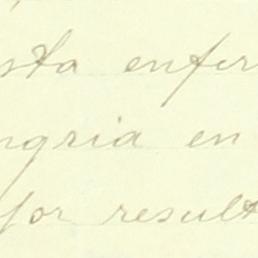 sta enfer
ngria en
jor result